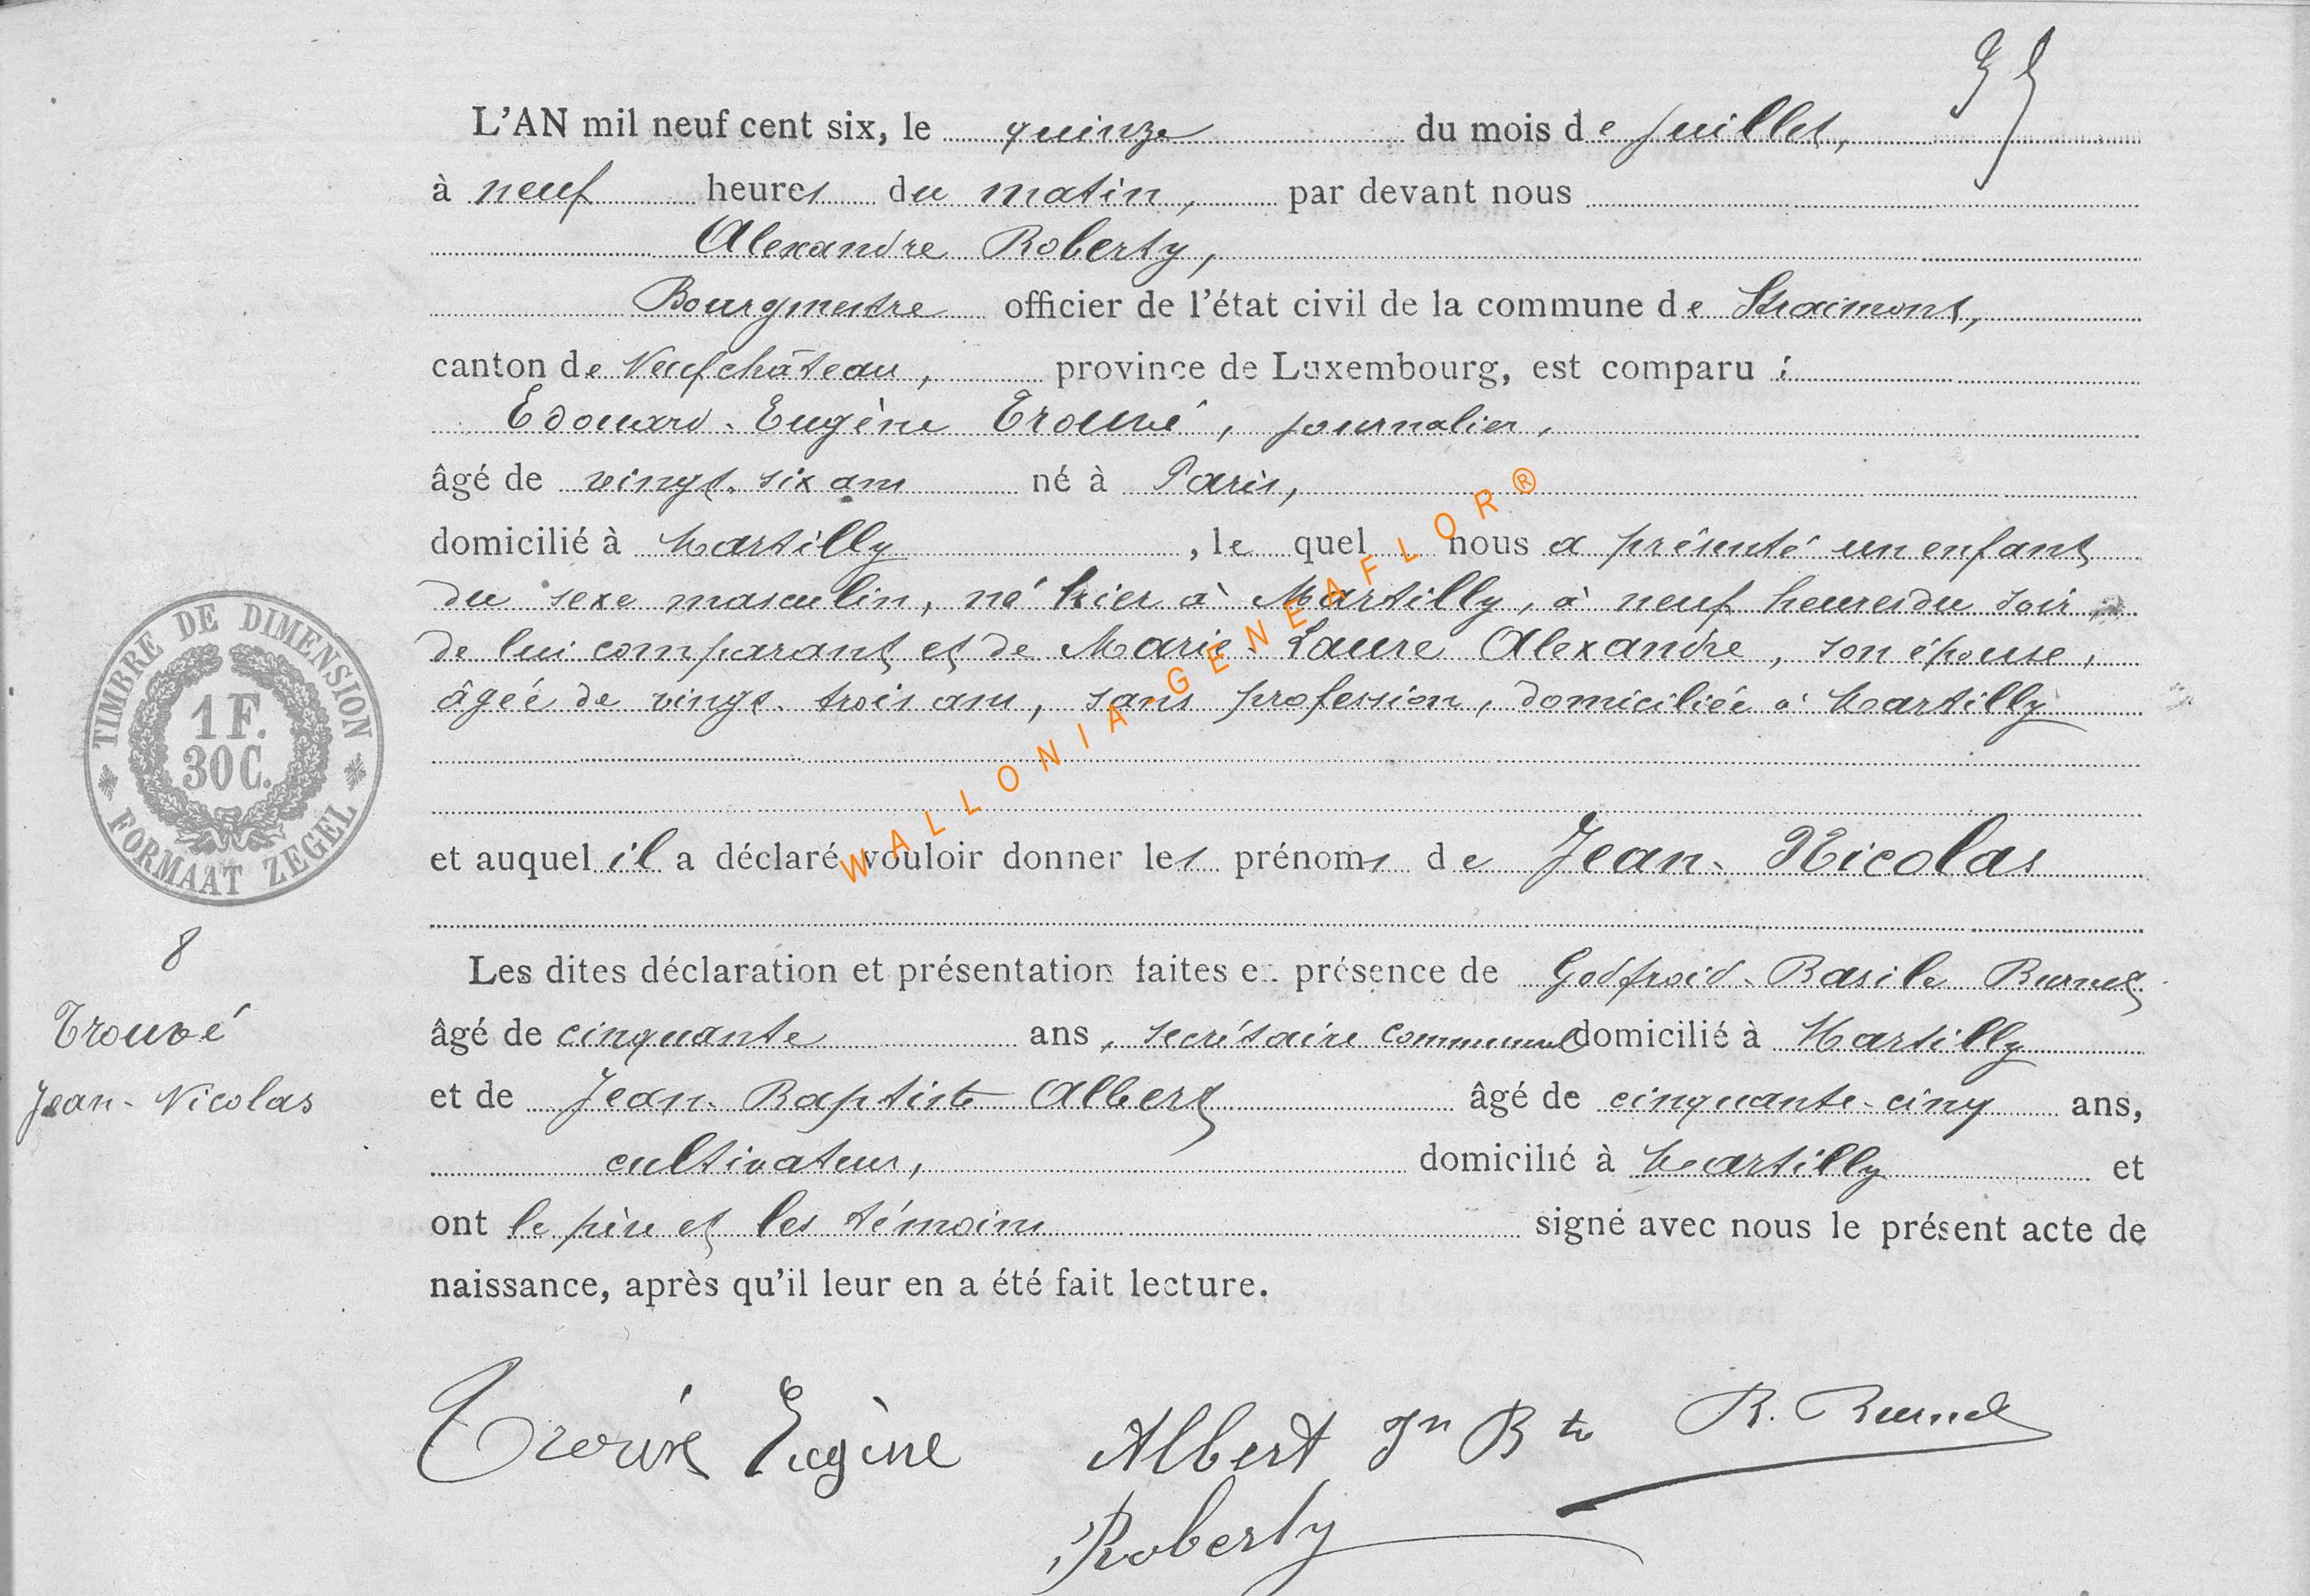 L'AN mil neuf cent six, le quinze du mois de juillet,
à neuf heures du matin, par devant nous
Alexandre Roberty,
Bourgmestre officier de l'état civil de la commune de Straimont,
canton de Neufchâteau, province de Luxembourg, est comparu :
Edouard-Eugène Trouvé, journalier,
âgé de vingt-six ans né à Paris,
domicilié à Martilly, le quel nous a présenté un enfant
du sexe masculin, né hier à Martilly, à neuf heures du soir,
de lui comparant et de Marie-Laure Alexandre, son épouse,
âgée de vingt-trois ans, sans profession, domiciliée à Martilly
WALLONIA-GENEAFLOR®
TIMBRE DE DIMENSION
1 F.
30 C.
FORMAAT ZEGEL
et auquel il a déclaré vouloir donner les prénoms de Jean-Nicolas
8
Trouvé
Jean-Nicolas
Les dites déclaration et présentation faites en présence de Godfroid-Basile Burnel
âgé de cinquante ans, secrétaire communal domicilié à Martilly
et de Jean-Baptiste Albert âgé de cinquante-cinq ans,
cultivateur, domicilié à Martilly et
ont le père et les témoins signé avec nous le présent acte de
naissance, après qu'il leur en a été fait lecture.
Trouvé Eugène Albert Jn Bte B. Burnel
Roberty